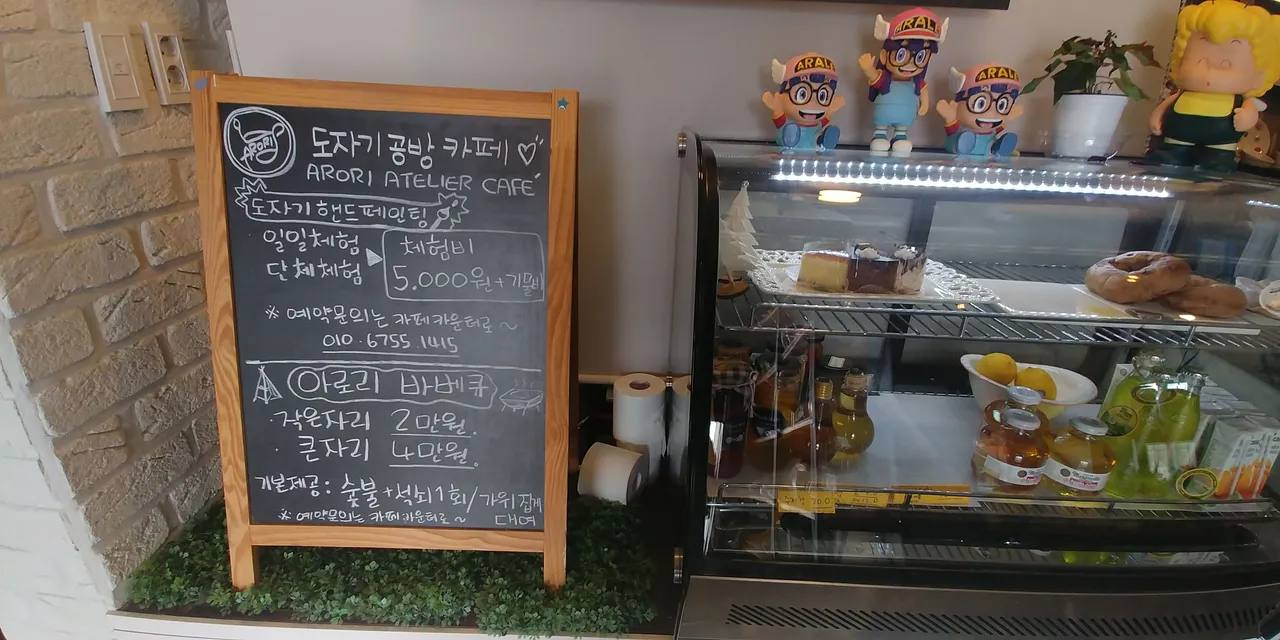 ARORI
도자기 공방 카페
ARORI ATELIER CAFE
도자기 핸드페인팅
일일체험
단체체험
체험비
5.000원+기물비
※ 예약문의는 카페카운터로~
010.6755.1415
아로리 바베큐
·작은자리 2만원.
·큰자리 4만원.
기본제공: 숯불+석쇠1회/가위집게
대여
※ 예약문의는 카페카운터로~
ARALE
ARALE
ARALE